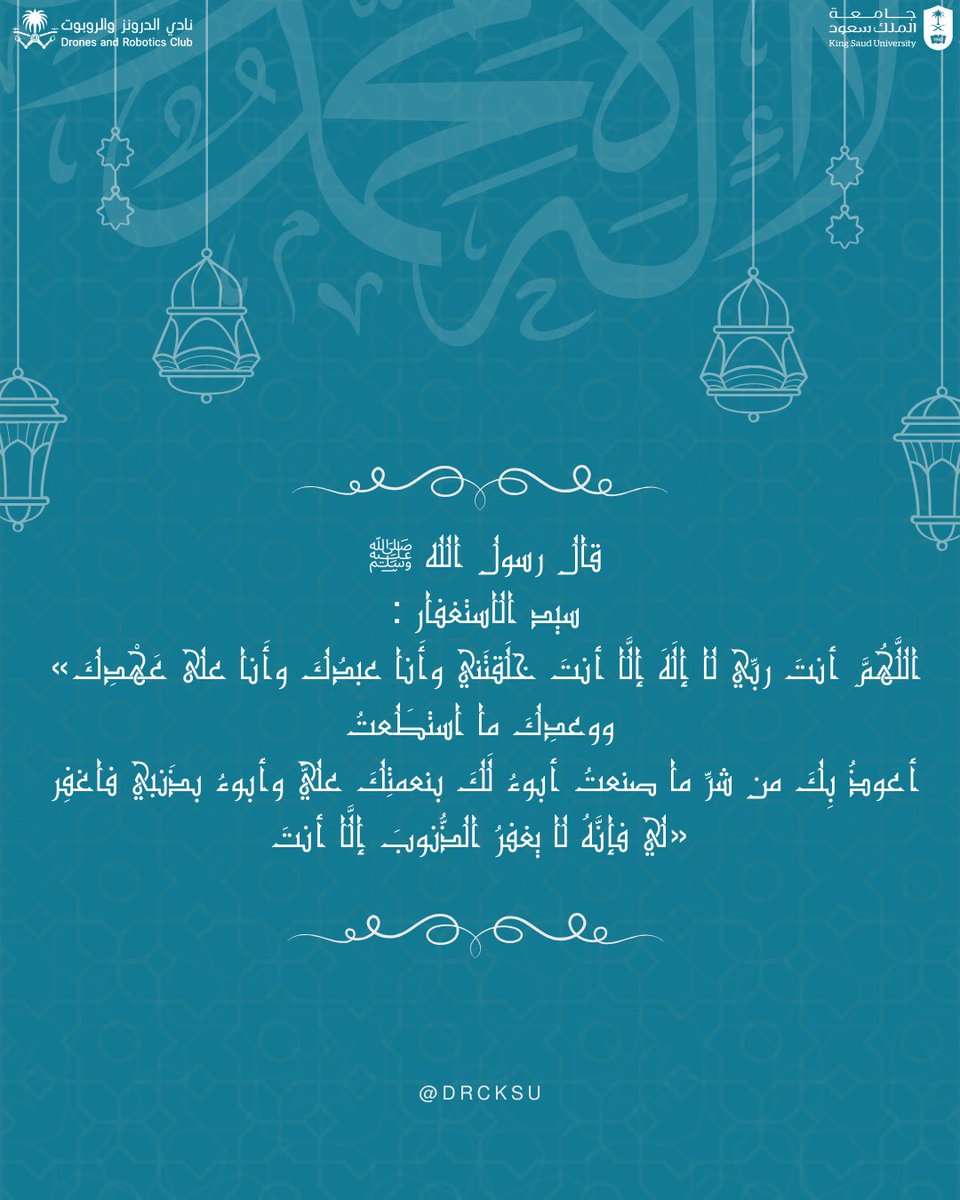 نادي الدرونز والروبوت
Drones and Robotics Club
جامعة
الملك سعود
King Saud University
قال رسول الله ﷺ
سيد الاستغفار :
اللَّهُمَّ أنتَ ربِّي لا إلَهَ إلَّا أنتَ خلَقتَني وأَنا عبدُكَ وأَنا على عَهْدِكَ»
ووعدِكَ ما استطَعتُ
أعوذُ بِكَ من شرِّ ما صنعتُ أبوءُ لَكَ بنعمتِكَ عليَّ وأبوءُ بذَنبي فاغفِر
«لي فإنَّهُ لا يغفرُ الذُّنوبَ إلَّا أنتَ
@DRCKSU